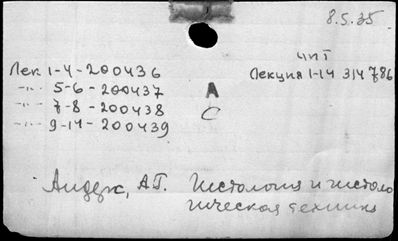 8.5.35
чит
Лек. 1-4-200436
Лекция 1-14 314786
-"- 5-6-200437
А
-"- 7-8-200438
С
-"- 9-14-200439
А.Г. Гистология и гистоло
гическая техника